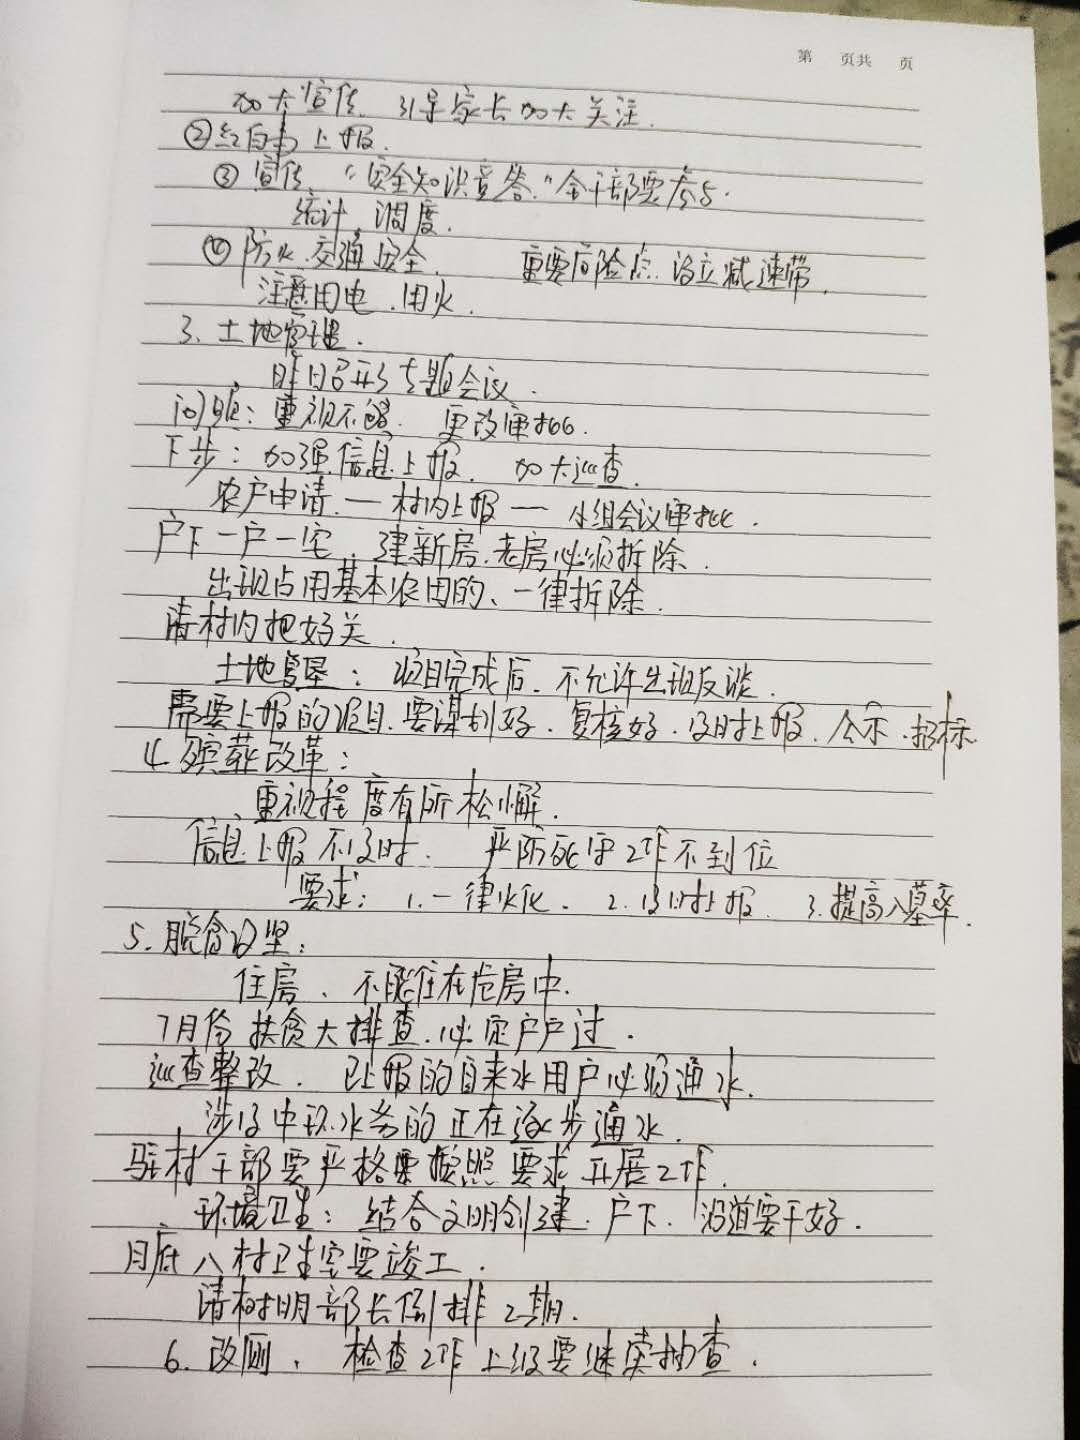 第 页共 页
加大宣传. 引导家长加大关注.
②红白事上报.
③宣传. “安全知识竞答.”全干部要参与.
统计. 调度.
④防火. 交通安全. 重要危险点. 设立减速带.
注意用电. 用火.
3. 土地管理.
昨日召开了专题会议.
问题: 重视不够. 更改审批.
下步: 加强信息上报. 加大巡查.
农户申请 — 村内上报 — 小组会议审批.
户下一户一宅. 建新房. 老房必须拆除.
出现占用基本农田的、一律拆除.
请村内把好关.
土地复垦: 项目完成后. 不允许出现反谈.
需要上报的项目. 要谋划好. 复核好. 及时上报. 公示. 招标
4. 殡葬改革:
重视程度有所松懈.
信息上报不及时. 严防死守工作不到位
要求: 1. 一律火化. 2. 及时上报. 3. 提高入墓率.
5. 脱贫攻坚:
住房. 不能住在危房中.
7月份扶贫大排查. 必定户户过.
巡查整改. 已上报的自来水用户必须通水.
涉及中环水务的正在逐步通水.
驻村干部要严格要按照要求开展工作.
环境卫生: 结合文明创建. 户下. 沿道要干好.
月底八村卫生室要竣工.
请树明部长倒排工期.
6. 改厕. 检查工作上级要继续抽查.